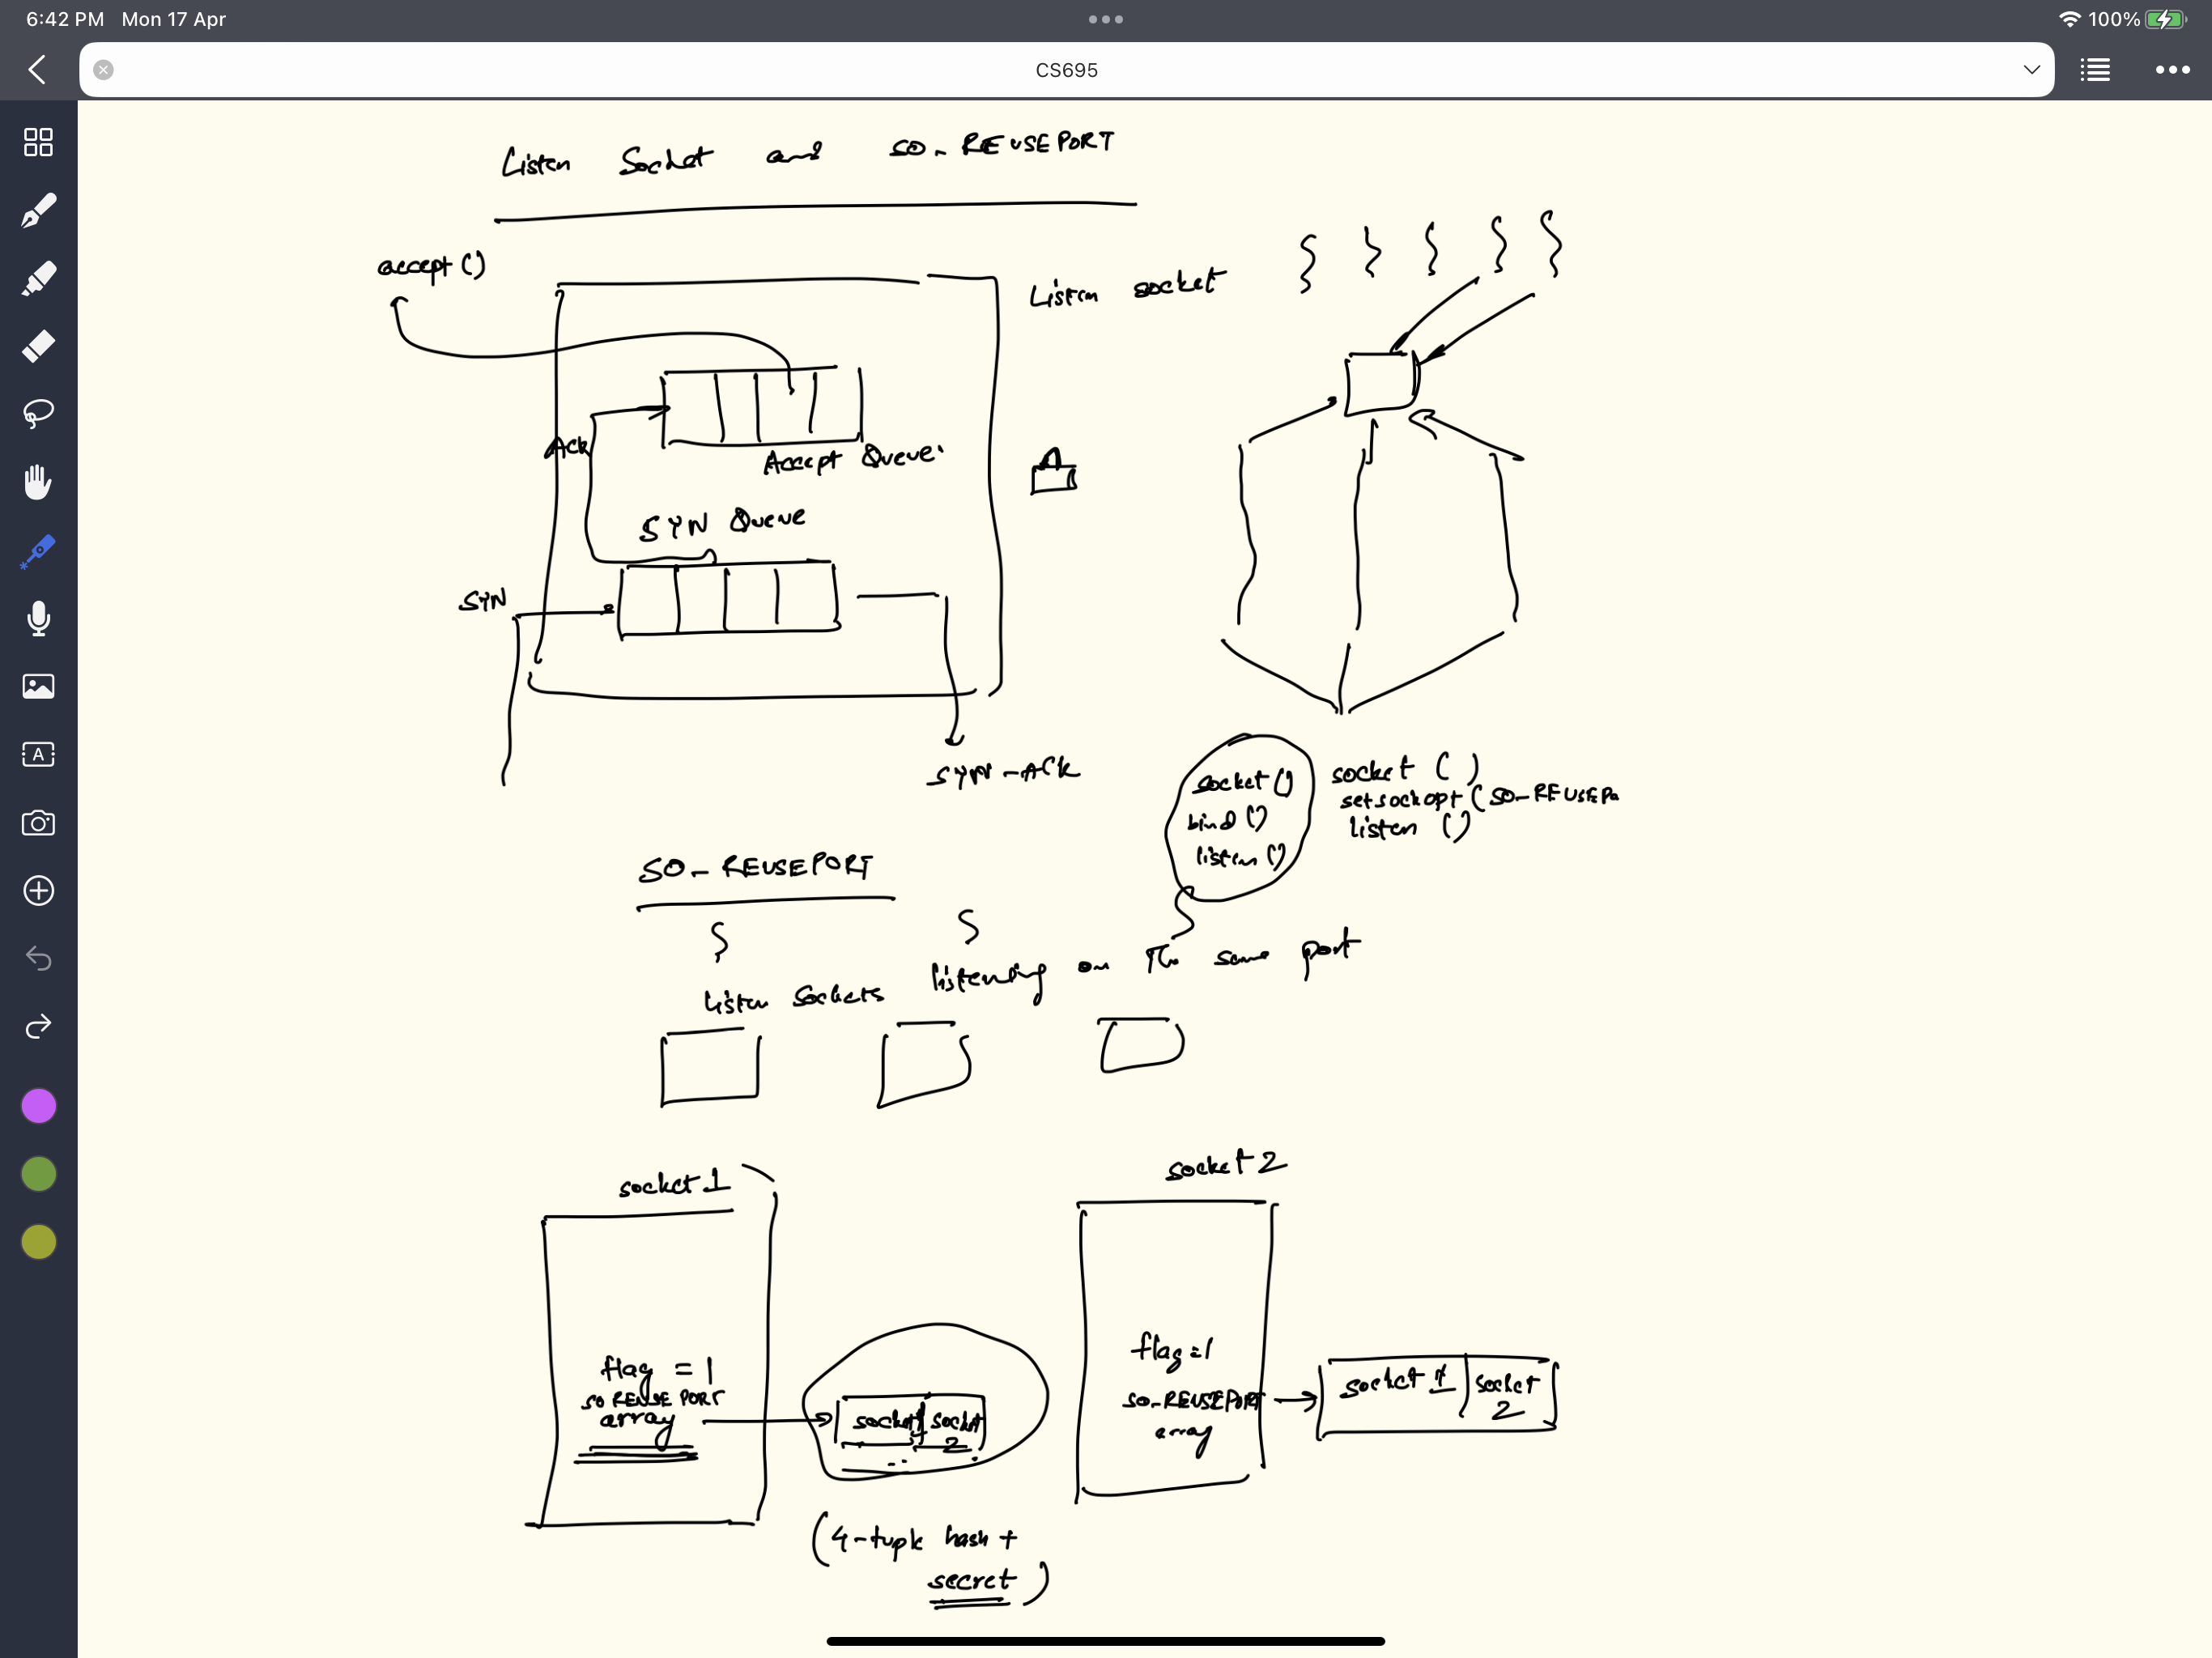 6:42 PM Mon 17 Apr
100%
CS695
A
Listen Socket and SO_REUSEPORT
accept ()
Listen socket
Ack
Accept Queue
SYN Queue
SYN
SYN-ACK
socket ()
bind ()
listen ()
socket ( )
setsockopt (SO_REUSEPO
listen ()
SO_REUSEPORT
listen sockets listening on the same port
socket 1
socket 2
flag = 1
SO REUSE PORT
array
socket 1 socket
2
flag = 1
SO_REUSEPORT
array
socket 1 socket
2
(4-tuple hash +
secret )